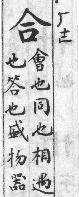 合
會也同也相遇
也答也盛物器